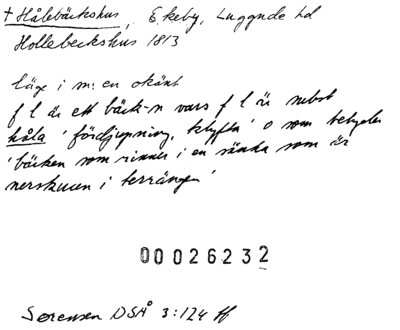 † Hålebäckshus, Ekeby, Luggude hd
Hollebeckshus 1813
läge i m: en okänt
f l är ett bäck-n vars f l är subst
håla 'fördjupning, klyfta' o som betyder
'bäcken som rinner i en sänka som är
nerskuren i terrängen'
00026232
Sørensen DSÅ 3:124 ff